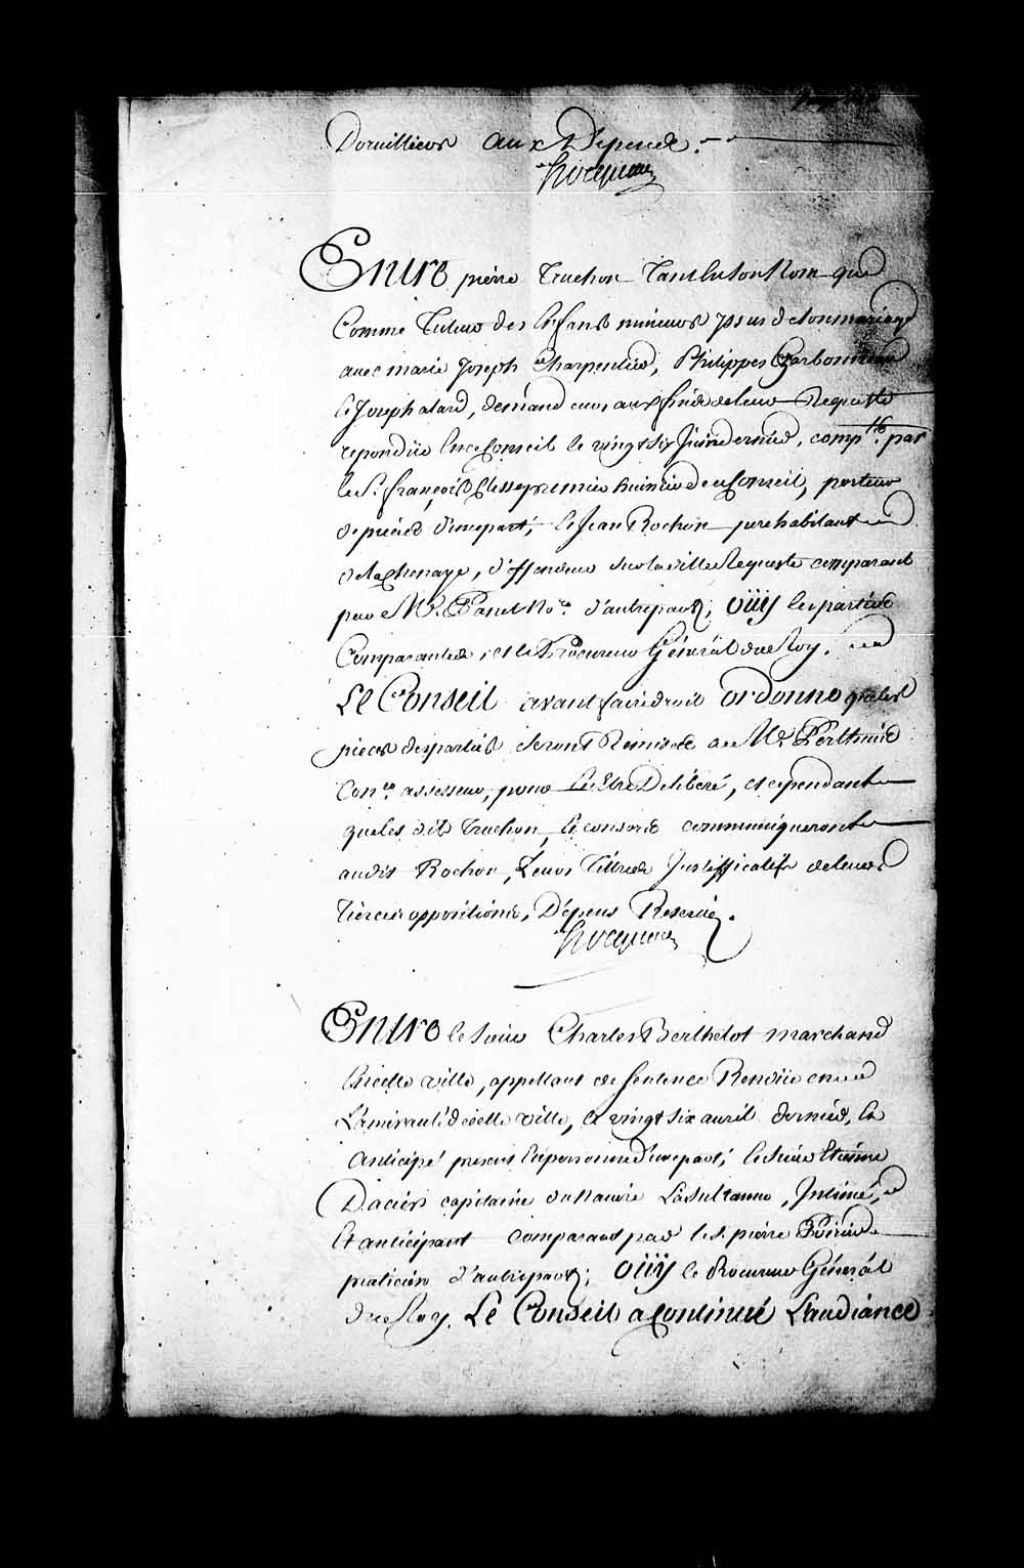 Dorvilliers aux Dépens.
Hocquart
Entre pierre Truchon Tant En son Nom que
Comme Tuteur des Enfans mineurs Issus de son mariage
avec marie Joseph Charpentier, Philippes Charbonneau
et Joseph alard, demandeurs aux fins de leur Requeste
repondüe En ce Conseil le vingt six Juin dernier, comp.ts par
le S.r françois Clesse premier huissier de ce Conseil, porteur
de pieces d'une part, et Jean Rochon pere habitant
de la Chenaye, deffendeur sur la ditte Requeste comparant
par M.e Panet No.re d'autre part; Oüy les parties
Comparantes, et le Procureur Général du Roy.
Le Conseil avant faire droit ordonne que les
pieces des parties seront Remises a M.e Perthuis
Con.er assesseur, pour En Etre Délibéré, et cependant
que les dits Truchon, et consors communiqueront
audit Rochon, Leurs Titres Justifficatifs de leurs
tierces oppositions, Dépens Reservés.
Hocquart
Entre le Sieur Charles Berthelot marchand
En cette ville, appellant de sentence Rendüe en
L'amirauté de cette ville, le vingt six avril dernier, et
anticipé present En personne d'une part; et le Sieur Etienne
Daciers capitaine du Navire La Sultanne, Intimé,
Et anticipant comparant par le S. pierre Poirier
praticien d'autre part; Oüy le Procureur Général
du Roy. Le Conseil a Continué L'audiance